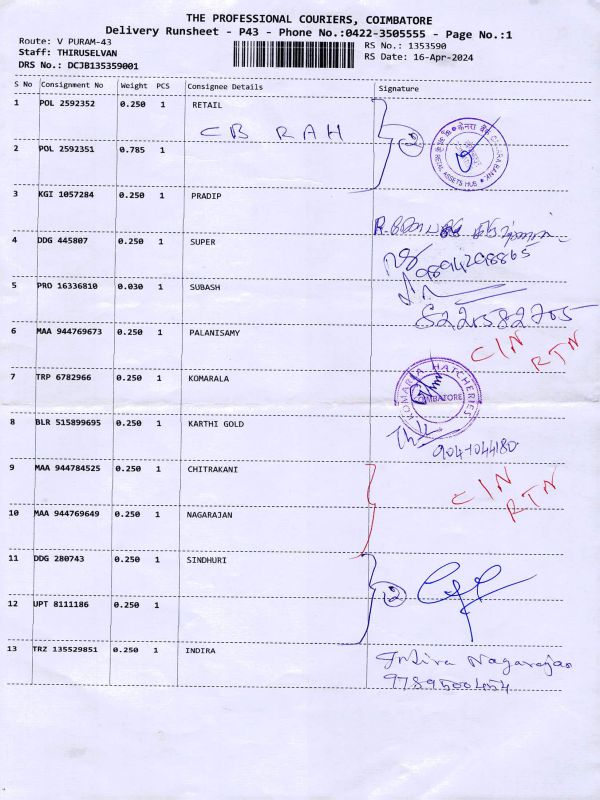 THE PROFESSIONAL COURIERS, COIMBATORE
Delivery Runsheet - P43 - Phone No.:0422-3505555 - Page No.:1
Route: V PURAM-43
RS No.: 1353590
Staff: THIRUSELVAN
RS Date: 16-Apr-2024
DRS No.: DCJB135359001
S No Consignment No Weight PCS Consignee Details Signature
1 POL 2592352 0.250 1 RETAIL
CB RAH
2 POL 2592351 0.785 1
2
CANARA BANK
RETAIL ASSETS HUB
3 KGI 1057284 0.250 1 PRADIP
4 DDG 445807 0.250 1 SUPER
9894298865
5 PRO 16336810 0.030 1 SUBASH
8221582705
6 MAA 944769673 0.250 1 PALANISAMY
CIN
RTN
7 TRP 6782966 0.250 1 KOMARALA
KOMARLA HATCHERIES
COIMBATORE
8 BLR 515899695 0.250 1 KARTHI GOLD
9 MAA 944784525 0.250 1 CHITRAKANI
CIN
RTN
10 MAA 944769649 0.250 1 NAGARAJAN
11 DDG 280743 0.250 1 SINDHURI
2
12 UPT 8111186 0.250 1
13 TRZ 135529851 0.250 1 INDIRA
Indira Nagarajan